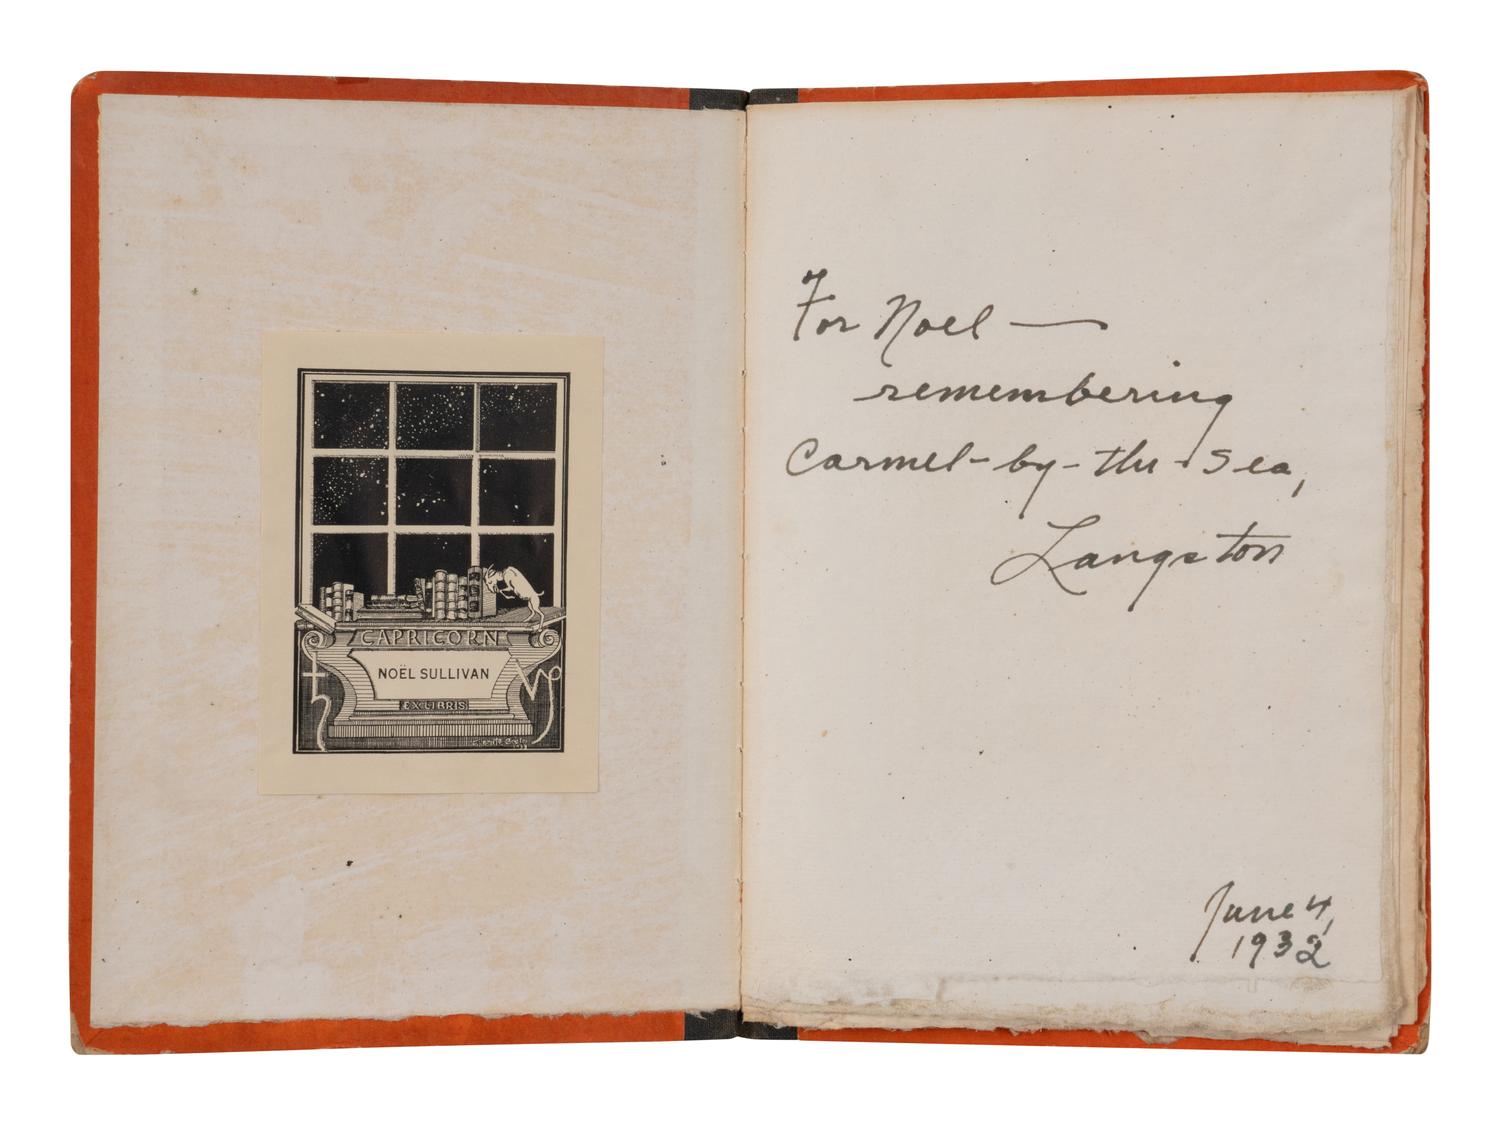 CAPRICORN
NOËL SULLIVAN
EX LIBRIS
For Noel —
remembering
Carmel-by-the-Sea,
Langston
June 4,
1932